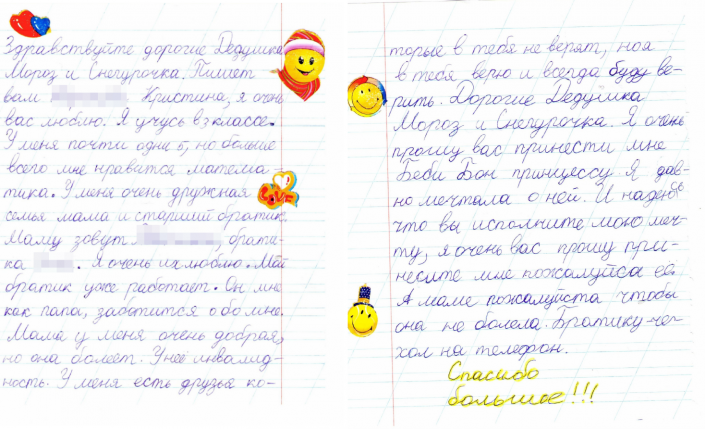 Здравствуйте дорогие Дедушка
Мороз и Снегурочка. Пишет
вам Кристина, я очень
вас люблю. Я учусь в 3 классе.
У меня почти одни 5, но больше
всего мне нравится матема
тика. У меня очень дружная
семья мама и старший братик.
Маму зовут, брати-
ка. Я очень их люблю. Мой
братик уже работает. Он мне
как папа, заботится обо мне.
Мама у меня очень добрая,
но она болеет. У неё инвалид-
ность. У меня есть друзья ко-
LOVE
торые в тебя не верят, но я
в тебя верю и всегда буду ве-
рить. Дорогие Дедушка
Мороз и Снегурочка. Я очень
прошу вас принести мне
Беби Бон принцессу Я дав-
но мечтала о ней. И надеюсь
что вы исполните мою меч-
ту, я очень вас прошу при-
несите мне пожалуйса её.
А маме пожалуйста чтобы
она не болела. Братику-че-
хол на телефон.
Спасибо
большое!!!